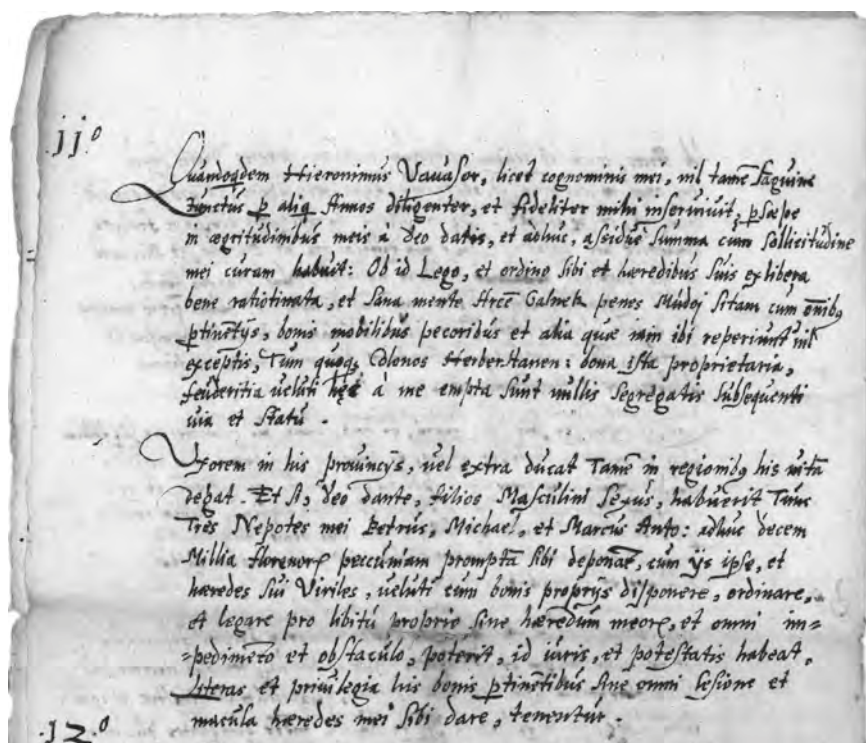 .jj.o
Quamoqdem Hieronimus Vauasor, licet cognominis mei, nil tamẽ sãguine
Iunctus ꝑ aliq Annos diligenter, et fideliter mihi inseruiuit, ꝑsæpe
in ægritudinibus meis à Deo datis, et adhuc, assiduè summa cum sollicitudine
mei curam habuit: Ob id Lego, et ordino sibi et hæredibus suis ex libera
bene ratiotinata, et sana mente Arcẽ Galnek penes Mudoj sitam cum oñibꝫ
ꝑtinẽtijs, bonis mobilibus pecoribus et alia quæ inin ibi reperiunt nil
exceptis, Tum quoqꝫ Colonos Herberstanen: bona ista proprietaria,
feuderitia ueluti à me empta sunt nullis segregatis subsequenti
uia et statu .
Vxorem in his prouincijs, uel extra ducat Tamẽ in regionibꝫ his uitã
degat. Et si, Deo dante, filios Masculini sexus, habuerit Tunc
Tres Nepotes mei Petrus, Michael, et Marcus Anto: adhuc decem
Millia florenorꝝ peccuniam promptã sibi deponãt, cum ijs ipse, et
hæredes sui Viriles, ueluti cum bonis proprijs disponere, ordinare,
et legare pro libitu proprio sine hæredum meorꝝ, et omni im=
=pedimẽto et obstaculo, poterit, id iuris, et potestatis habeat,
literas et priuilegia his bonis ꝑtinẽtibus sine omni lesione et
macula hæredes mei sibi dare, tenentur .
.j2.o